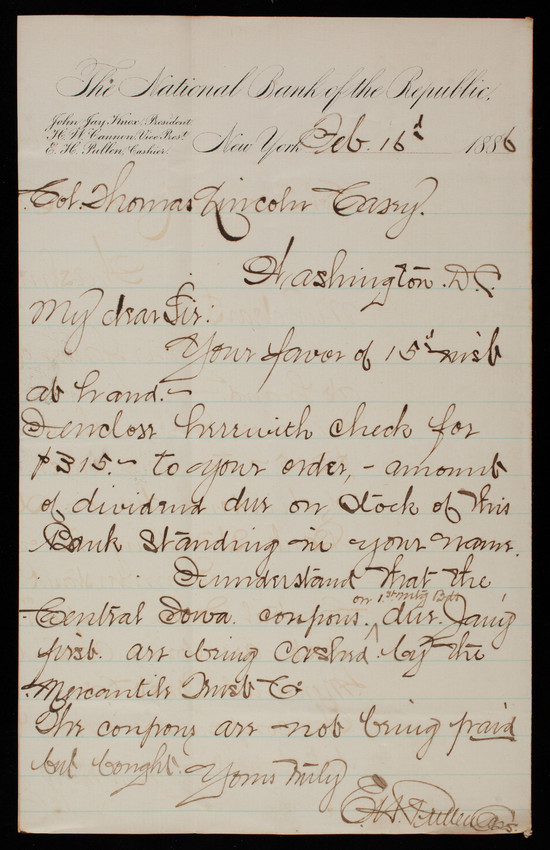 The National Bank of the Republic.
John Jay Knox. President
H. W. Cannon, Vice Prest.
E. H. Pullen, Cashier.
New York Feb. 16d 1886
Col. Thomas Lincoln Casey.
Washington. D.C.
My dear Sir:
Your favor of 15d inst
at hand.-
I enclose herewith check for
$315.- to your order, - amount
of dividend due on stock of this
Bank standing in your name.
I understand that the
on 1st mtg Bds
Central Iowa. coupons. due. Jan'y
first. are being cashed by the
Mercantile Trust Co
The coupons are not being paid
but bought. Yours truly
E. H. Pullen Cas.